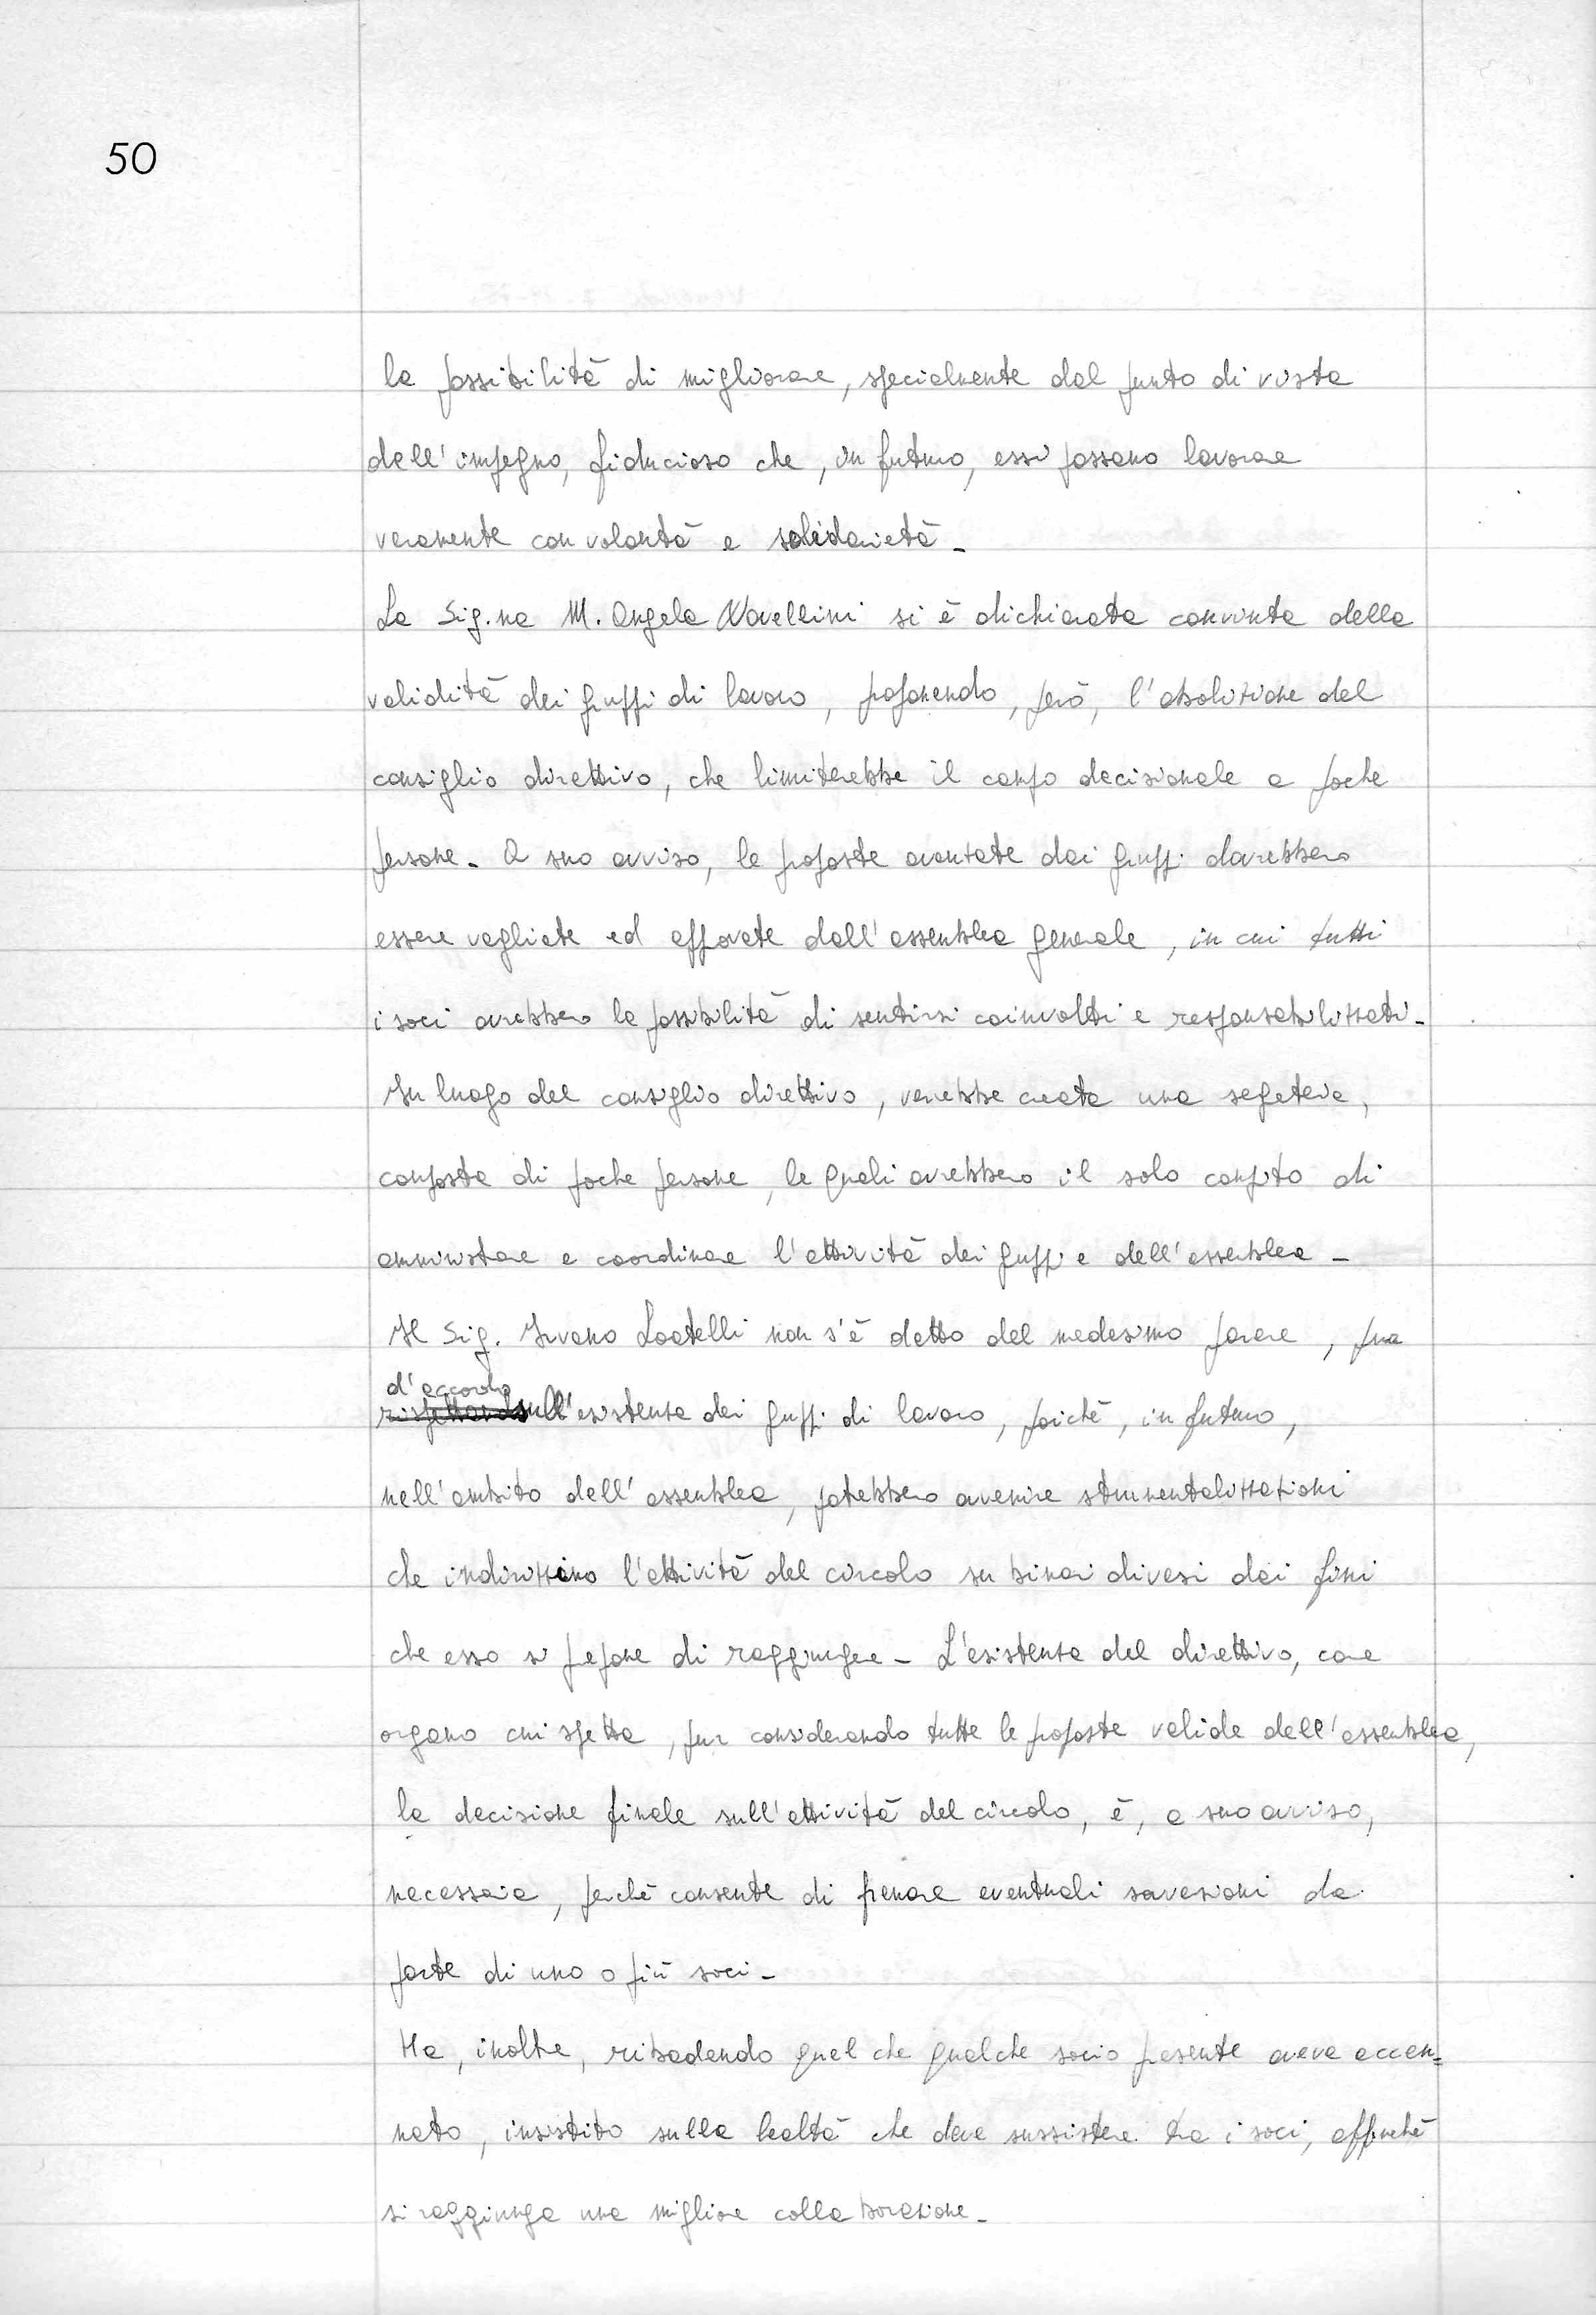 50
la possibilità di migliorare, specialmente dal punto di vista
dell'impegno, fiducioso che, in futuro, essi possano lavorare
veramente con volontà e solidarietà -
La Sig.na M. Angela Novellini si è dichiarata convinta della
validità dei gruppi di lavoro, proponendo, però, l'abolizione del
consiglio direttivo, che limiterebbe il campo decisionale a poche
persone - A suo avviso, le proposte avanzate dai gruppi dovrebbero
essere vagliate ed approvate dall'assemblea generale, in cui tutti
i soci avrebbero la possibilità di sentirsi coinvolti e responsabilizzati -
In luogo del consiglio direttivo, verrebbe creata una segreteria,
composta di poche persone, le quali avrebbero il solo compito di
amministrare e coordinare l'attività dei gruppi e dell'assemblea -
Il Sig. Ivano Locatelli non s'è detto del medesimo parere, pur
d'accordo
rispettando sull'esistenza dei gruppi di lavoro, poichè, in futuro,
nell'ambito dell'assemblea, potrebbero avvenire strumentalizzazioni
che indirizzino l'attività del circolo su binari diversi dai fini
che esso si propone di raggiungere - L'esistenza del direttivo, come
organo cui spetta, pur considerando tutte le proposte valide dell'assemblea,
la decisione finale sull'attività del circolo, è, a suo avviso,
necessaria, perchè consente di frenare eventuali sovversioni da
parte di uno o più soci -
Ha, inoltre, ribadendo quel che qualche socio presente aveva accen=
nato, insistito sulla lealtà che deve sussistere tra i soci, affinchè
si raggiunga una migliore collaborazione -